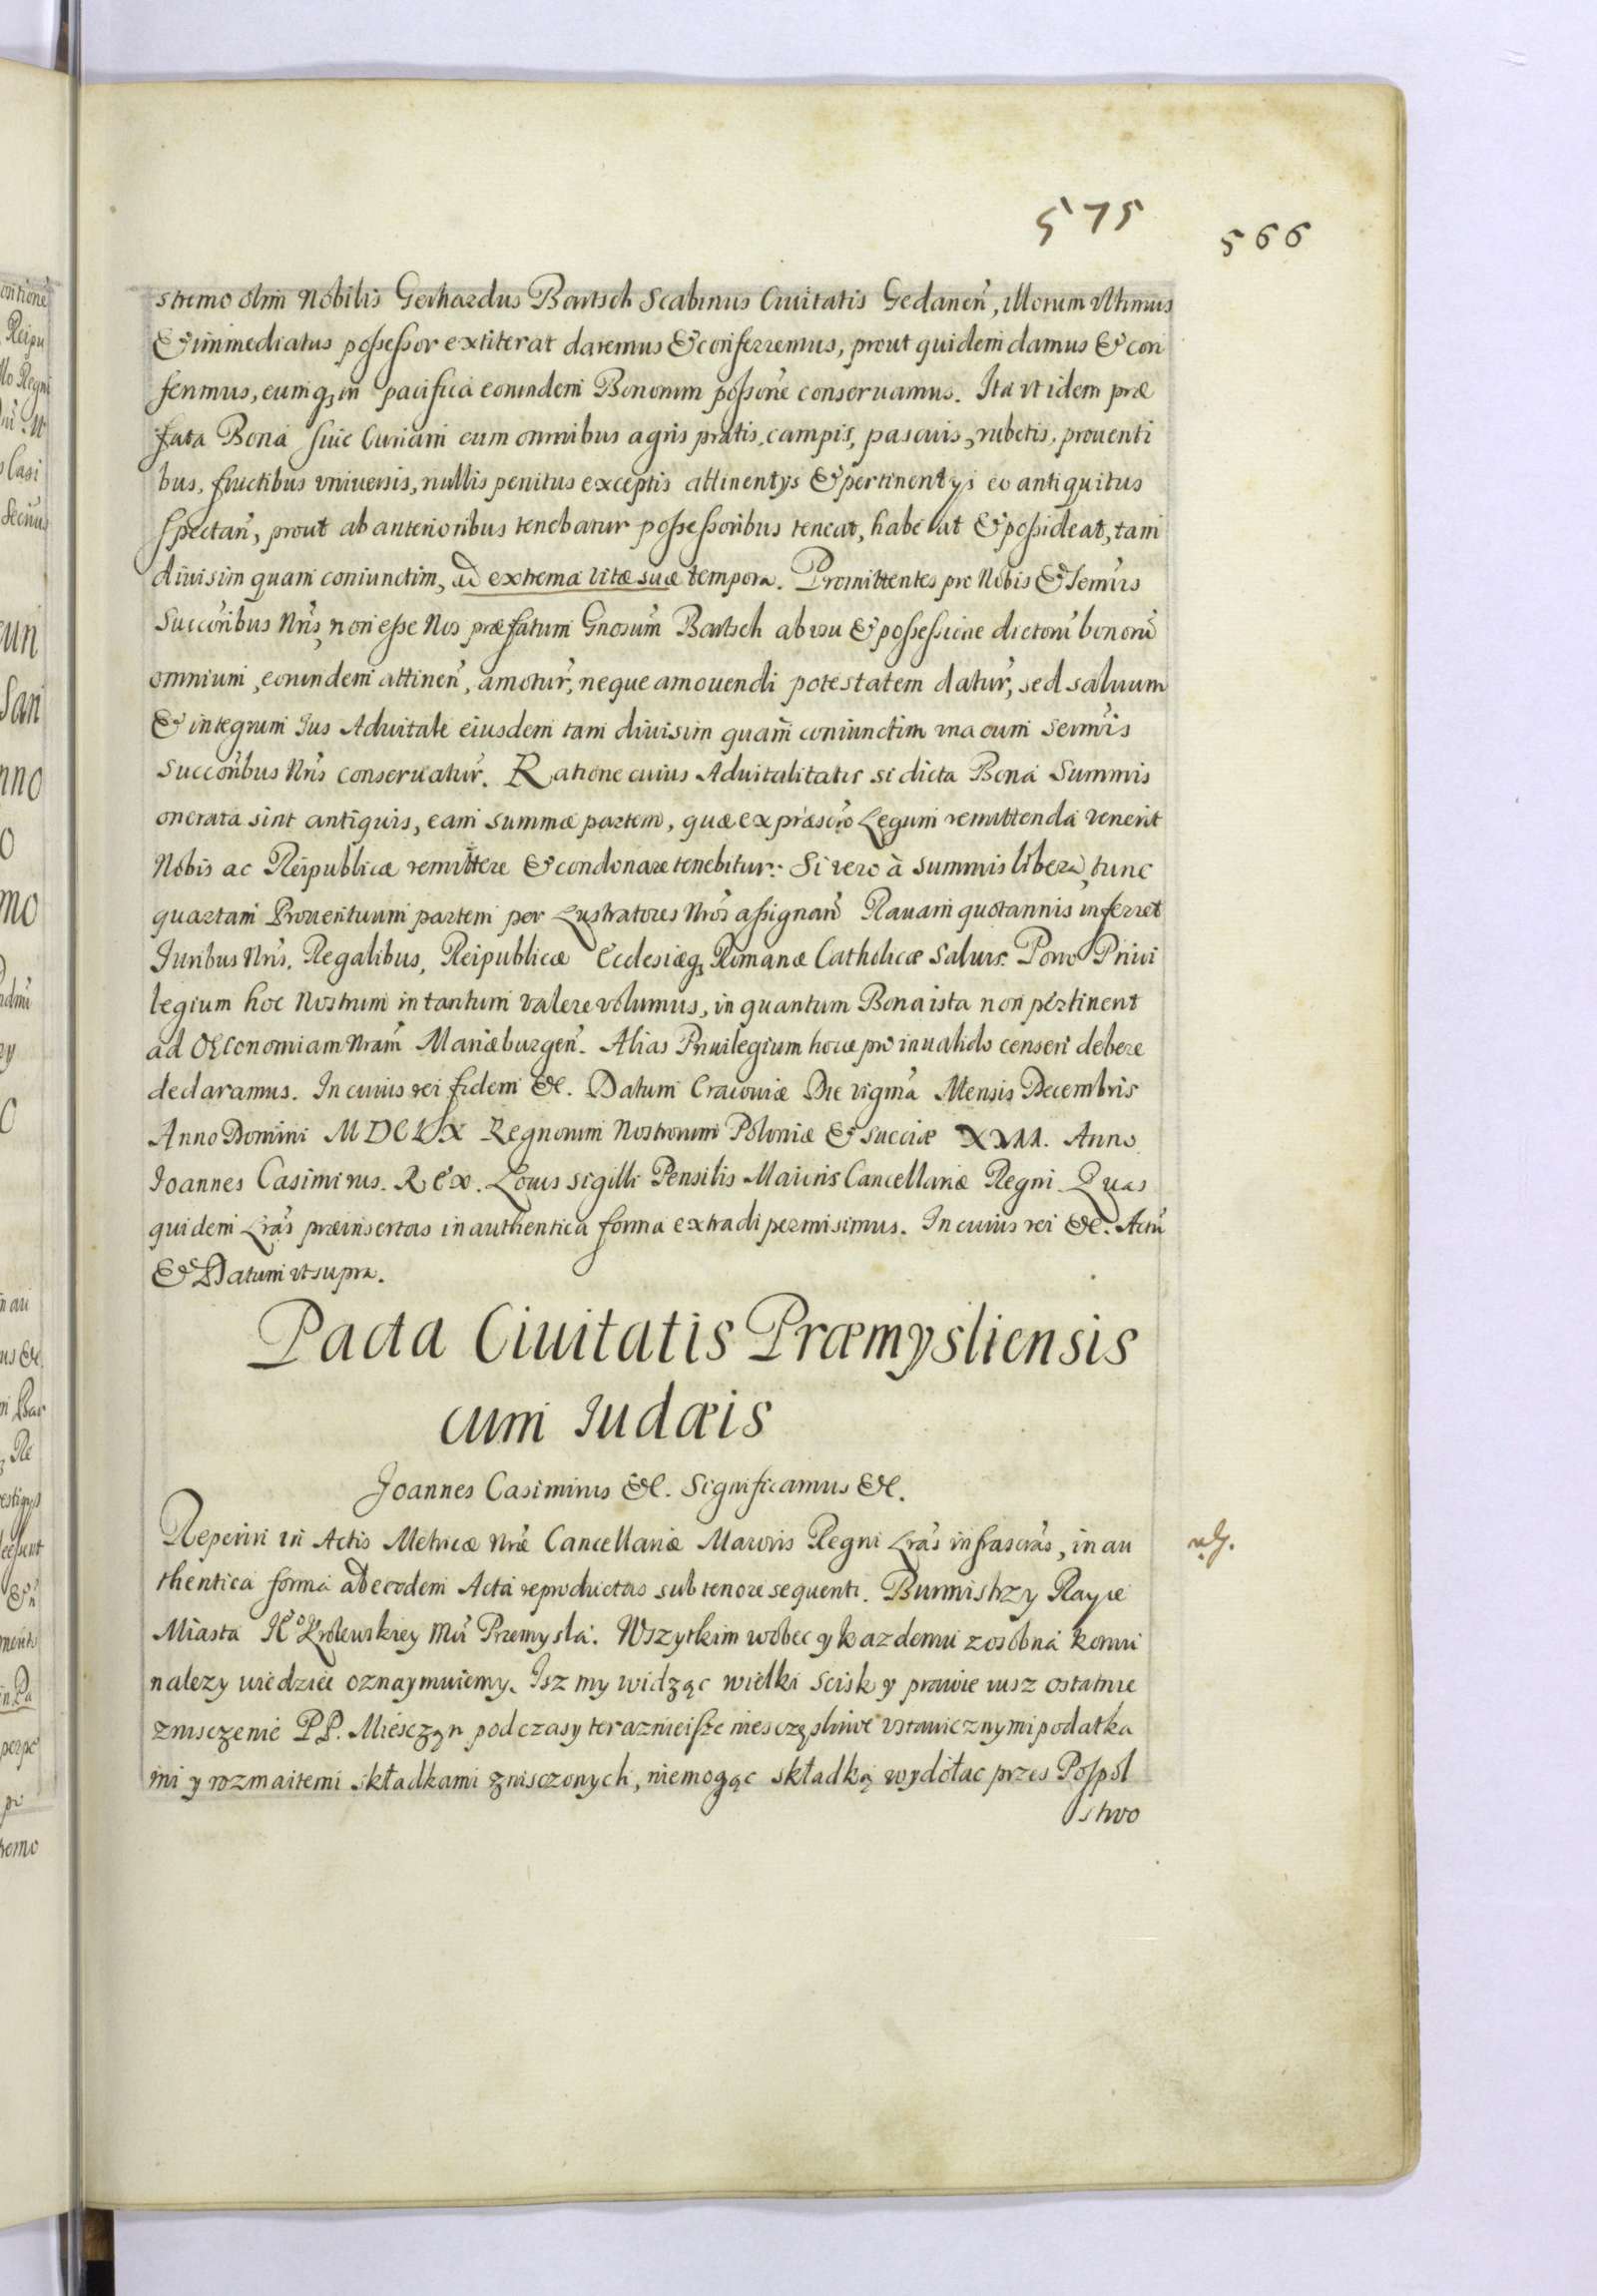 575
566
stremo olim Nobilis Gerhardus Bartsch Scabinus Ciuitatis Gedanen̄, illorum vltimus
& immediatus possessor extiterat daremus & conferremus, prout quidem damus & con
ferimus, eumq₃ in pacifica eorundem Bonorum possone conseruamus. Ita vt idem præ
fata Bona siue Curiam cum omnibus agris pratis, campis, pascuis, rubetis, prouenti
bus, fructibus vniuersis, nullis penitus exceptis attinentys & pertinentys eo antiquitus
spectan̄, prout ab anterioribus tenebatur possessoribus teneat, habeat & possideat, tam
diuisim quam coniunctim, ad extrema vitæ suæ tempora. Promittentes pro Nobis & Semīs
Succoribus Nris, non esse Nos præfatum Gnosum Bartsch ab vsu & possessione dictorū bonorū
omnium, eorundem attinen̄, amotur̄, neque amouendi potestatem datur̄, sed saluum
& integrum Ius Aduitale eiusdem tam diuisim quam coniunctim vna cum sermīs
succoribus Nris conseruatur̄. Ratione cuius Aduitalitatis si dicta Bona Summis
onerata sint antiquis, eam summæ partem, quæ ex præscro Legum remittenda venerit
Nobis ac Reipublicæ remittere & condonare tenebitur: Si vero à summis libera, tunc
quartam Prouentuum partem per Lustratores Nros assignan̄ Rauam quotannis inferret
Iuribus Nris, Regalibus, Reipublicæ Ecclesiæq₃ Romanæ Catholicæ Saluis. Porro Priui
legium hoc Nostrum in tantum valere volumus, in quantum Bona ista non pertinent
ad OEconomiam Nram Mariæburgen̄. Alias Priuilegium hocce pro inualido censeri debere
declaramus. In cuius rei fidem &c. Datum Cracouiæ Die vigma Mensis Decembris
Anno Domini MDCLIX Regnorum Nostrorum Poloniæ & Sueciæ XII. Anno
Joannes Casimirus. Rex. Locus sigilli Pensilis Maioris Cancellariæ Regni. Quas
quidem Lras præinsertas in authentica forma extradi permisimus. In cuius rei &c. Actū
& Datum vt supra.
Pacta Ciuitatis Præmysliensis
cum Iudæis
Joannes Casimirus &c. Significamus &c.
Reperiri in Actis Metricæ Nræ Cancellariæ Maioris Regni Lras infrascras, in au
thentica forma ab eodem Acta reproductas sub tenore sequenti. Burmistrzy Rayce
Miasta IEo Krolewskiey Mci Przemysla. Wszytkim wobec y kazdemu zosobna komu
nalezy wiedziec oznaymuiemy. Isz my widząc wielki scisk y prawie iusz ostatnie
znisczenie PP. Miesczan podczasy teraznieisze niesczęsliwe vstawicznymi podatka
mi y rozmaitemi składkami znisczonych, niemogąc składką wydołac przes Pospol
stwo